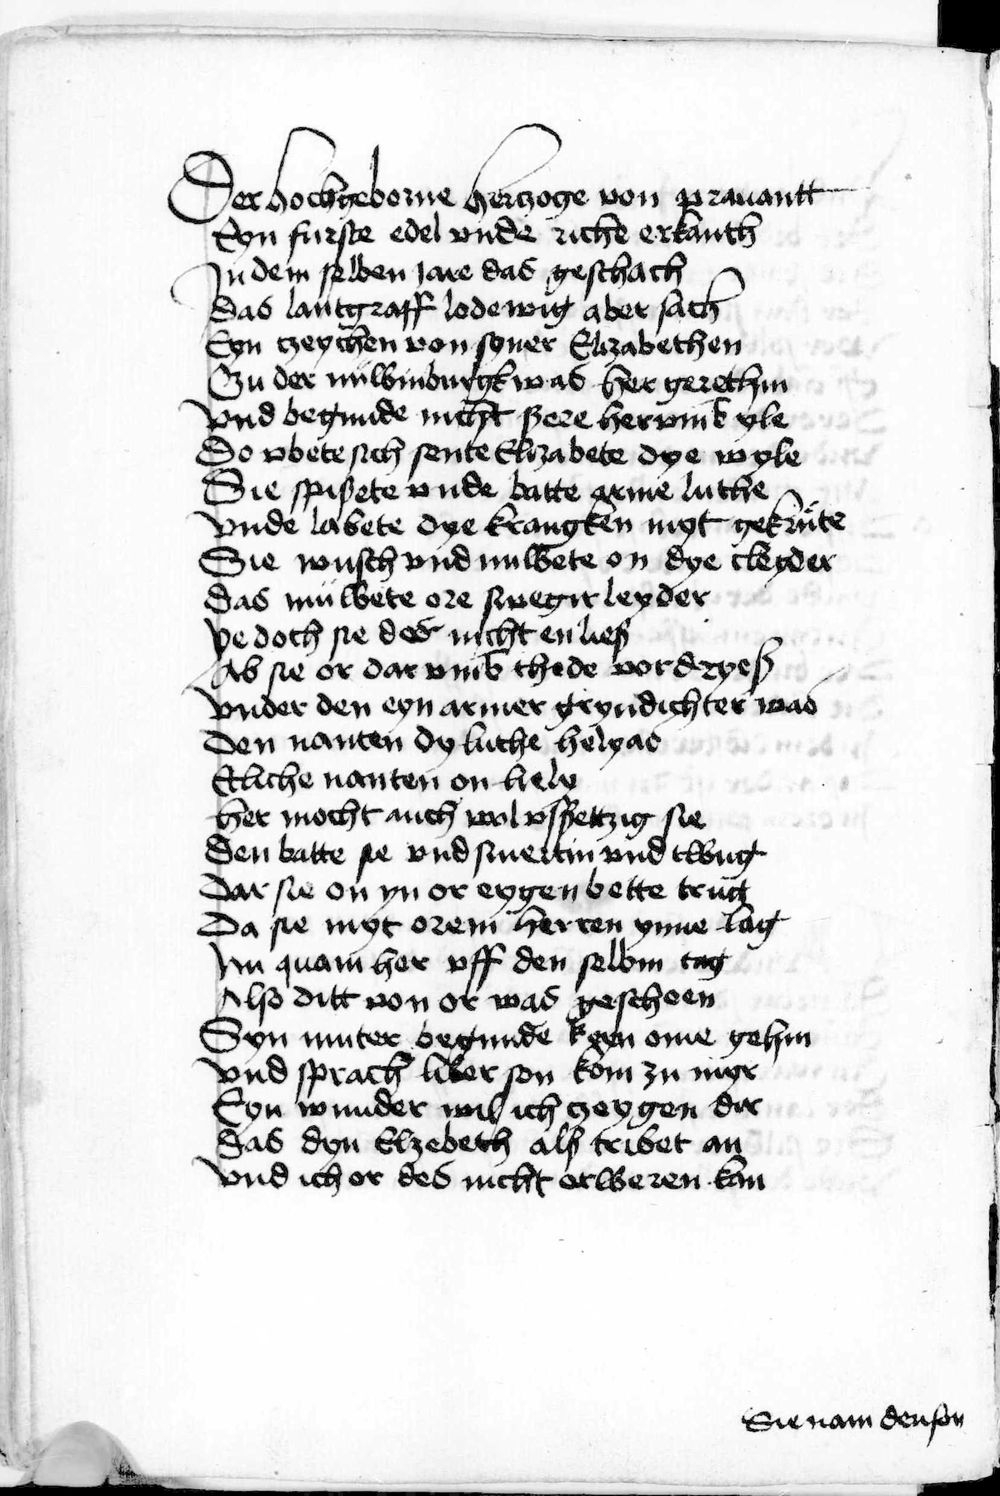 Der hochgeborne hertzoge von pravantt
Eyn furste edel vnde riche erkanth
In dem selben jare das geschach
Das lantgraff lodewig aber sach
Eyn tzeychen von syner Elizabethen
Zu der nuwinburgk was her gerethin
Vnd begunde nicht sere her vmb yle
Do vbete sich sente Elizabete dye wyle
Sie spisete vnde batte arme luthe
Vnde labete dye krangken myt gekrute
Sie wusch vnd nuwete on dye cleyder
Das muwete ore swegir leyder
Ye doch sie des nicht en liess
Ab sie or dar vmb thede vordryess
Vnder den eyn armer gryndichter was
Den nanten dy luthe helyas
Etliche nanten on hely
Her mocht auch wol vssettzig sie
Den batte sie vnd smertin vnd twug
Dar sie on yn or eygen bette trug
Da sie myt orem herren ynne lag
Nu quam her vff den selbin tag
Also ditt von or was gescheen
Syn muter begunde kegen ome gehin
Vnd sprach liber son kom zu myr
Eyn wunder wil ich tzeygen dir
Das dyn Elzebeth als tribet an
Vnd ich or des nicht erweren kan
Sie nam den son